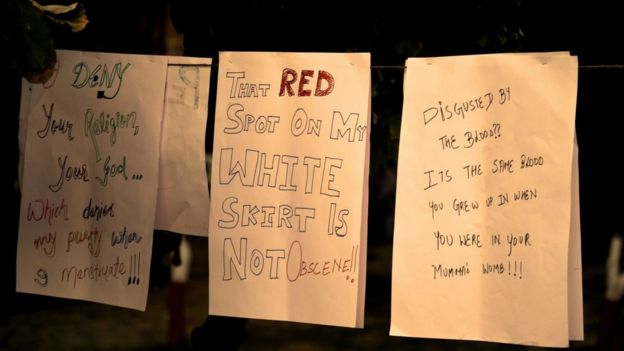 DENY
Your Religion,
Your God...
Which denies
my purity when
I menstruate!!!
THAT RED
SPOT ON MY
WHITE
SKIRT IS
NOT OBSCENE!!
DISGUSTED BY
THE BLOOD??
ITS THE SAME BLOOD
YOU GREW UP IN WHEN
YOU WERE IN YOUR
MUMMA'S WOMB!!!